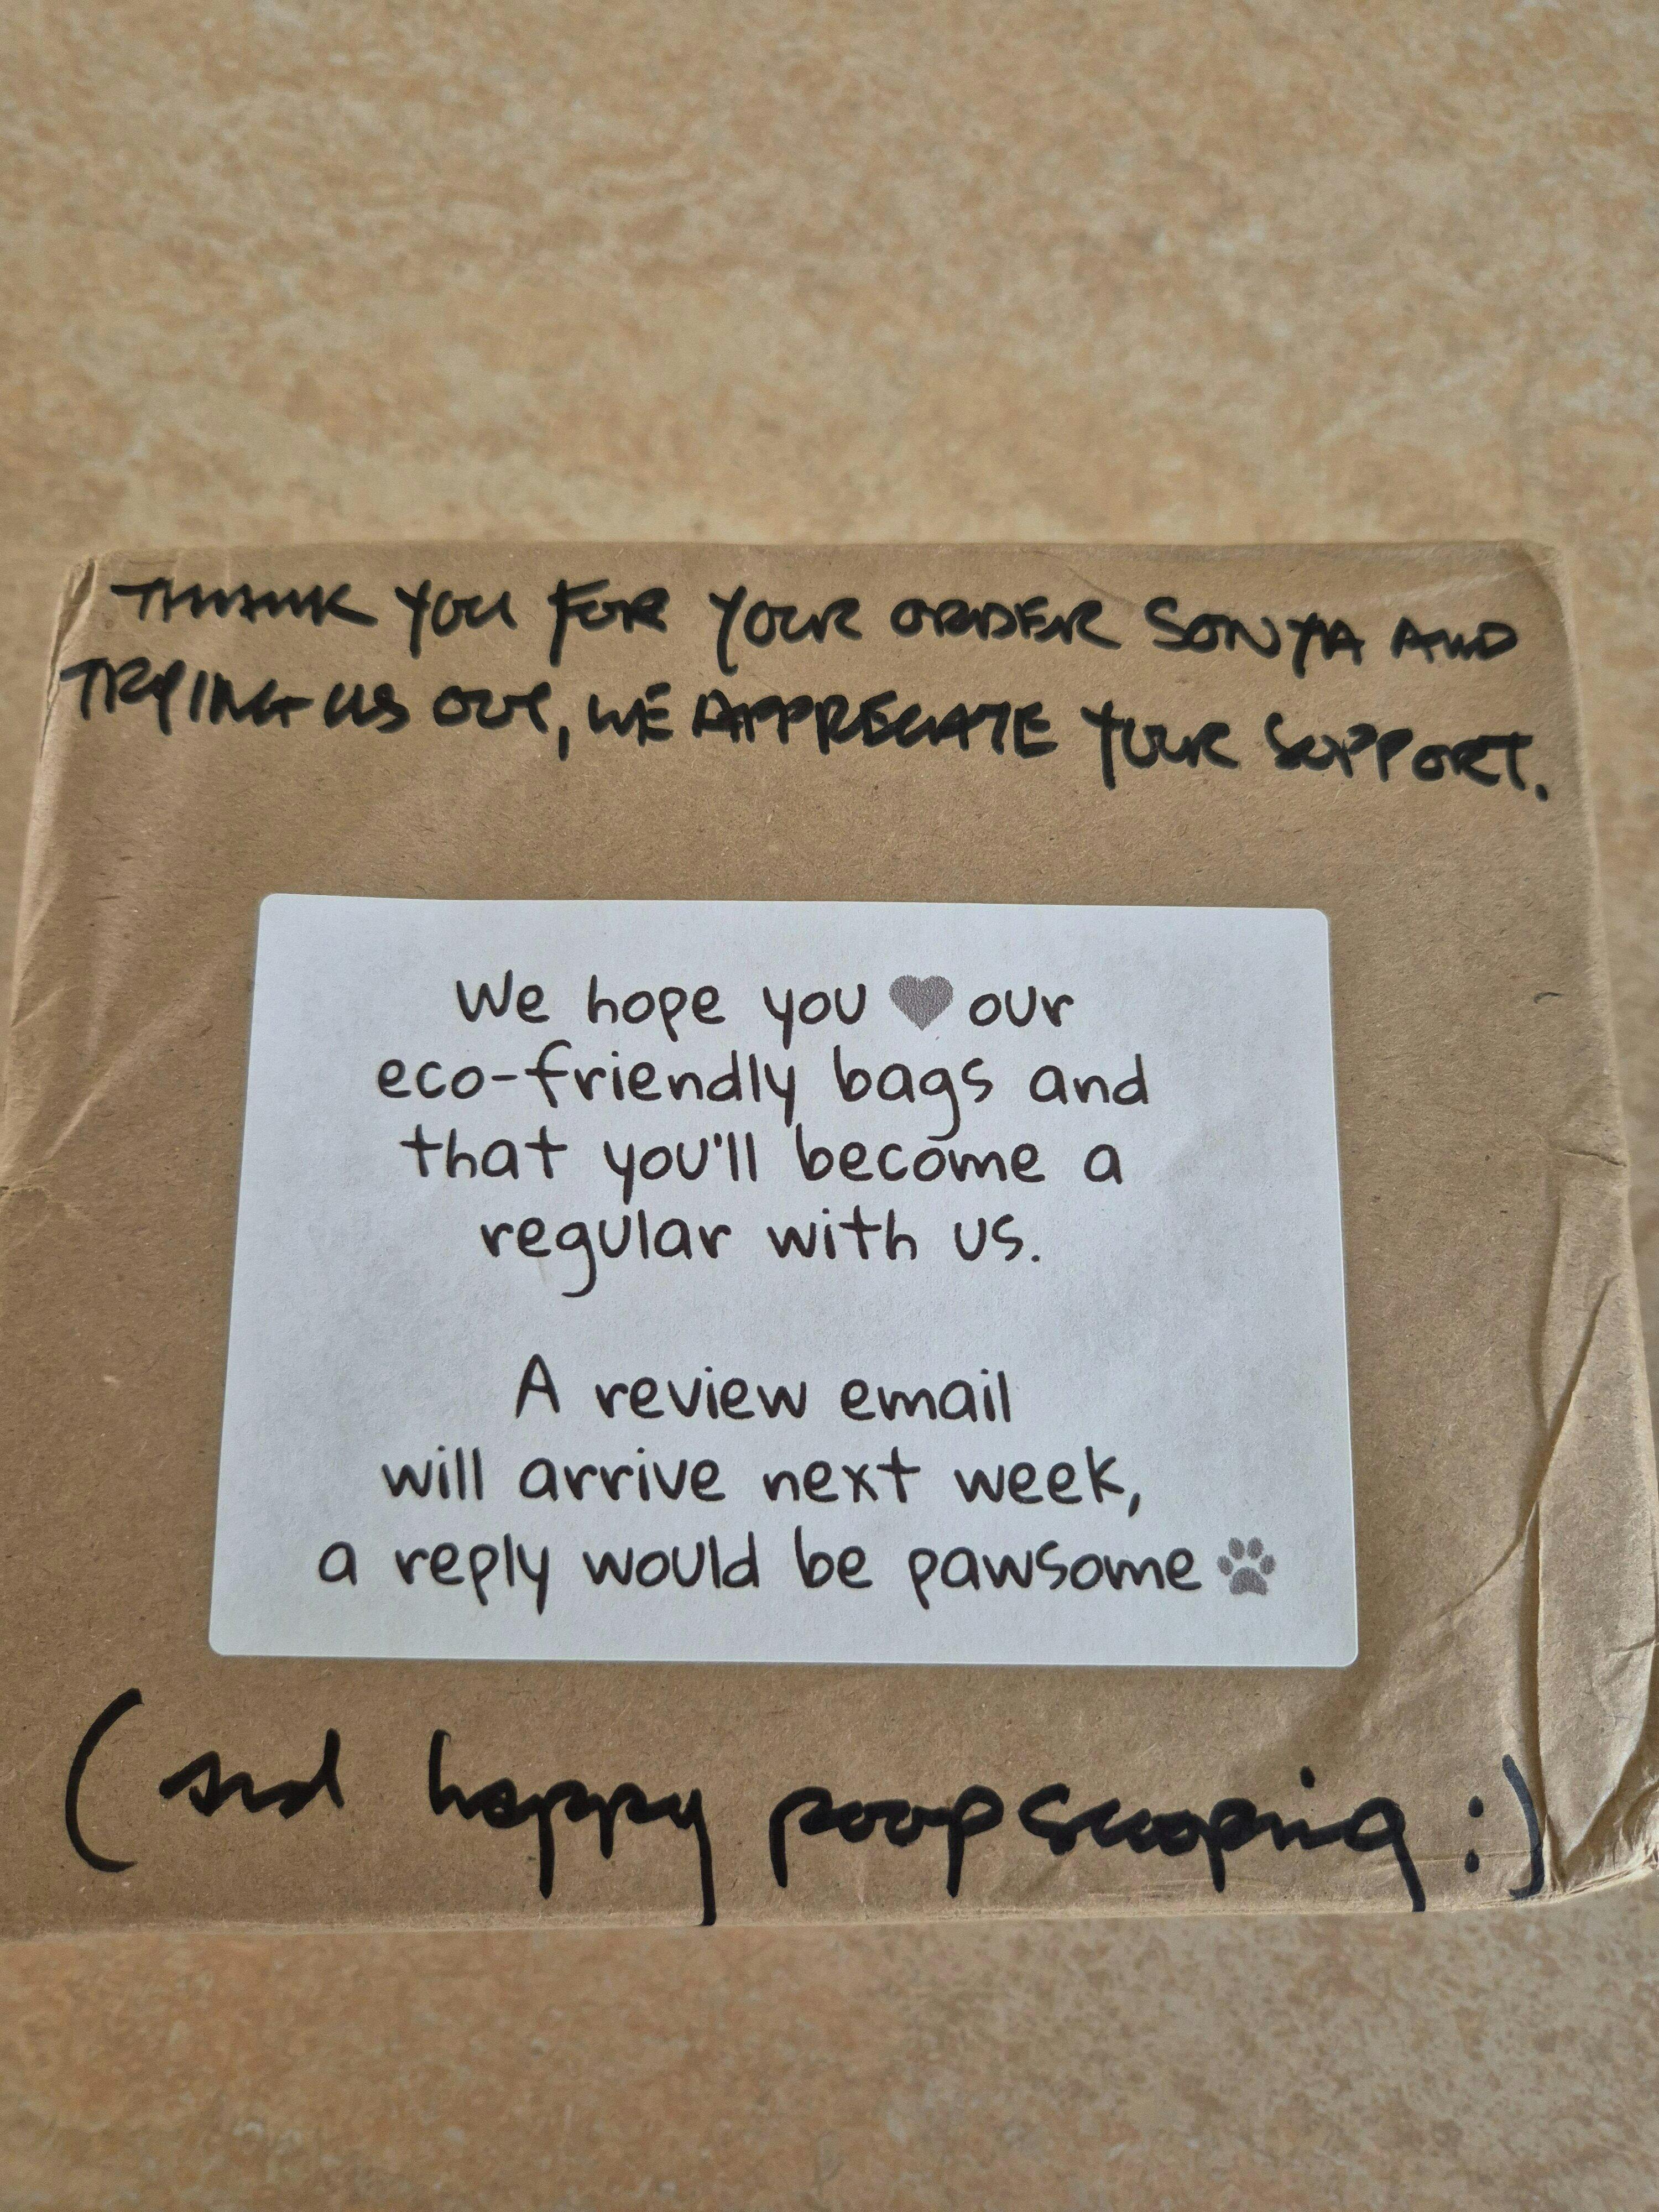 THANK YOU FOR YOUR ORDER SONYA AND
TRYING US OUT, WE APPRECIATE YOUR SUPPORT.
We hope you ♥ our
eco-friendly bags and
that you'll become a
regular with us.
A review email
will arrive next week,
a reply would be pawsome 🐾
(and happy poopscooping :)